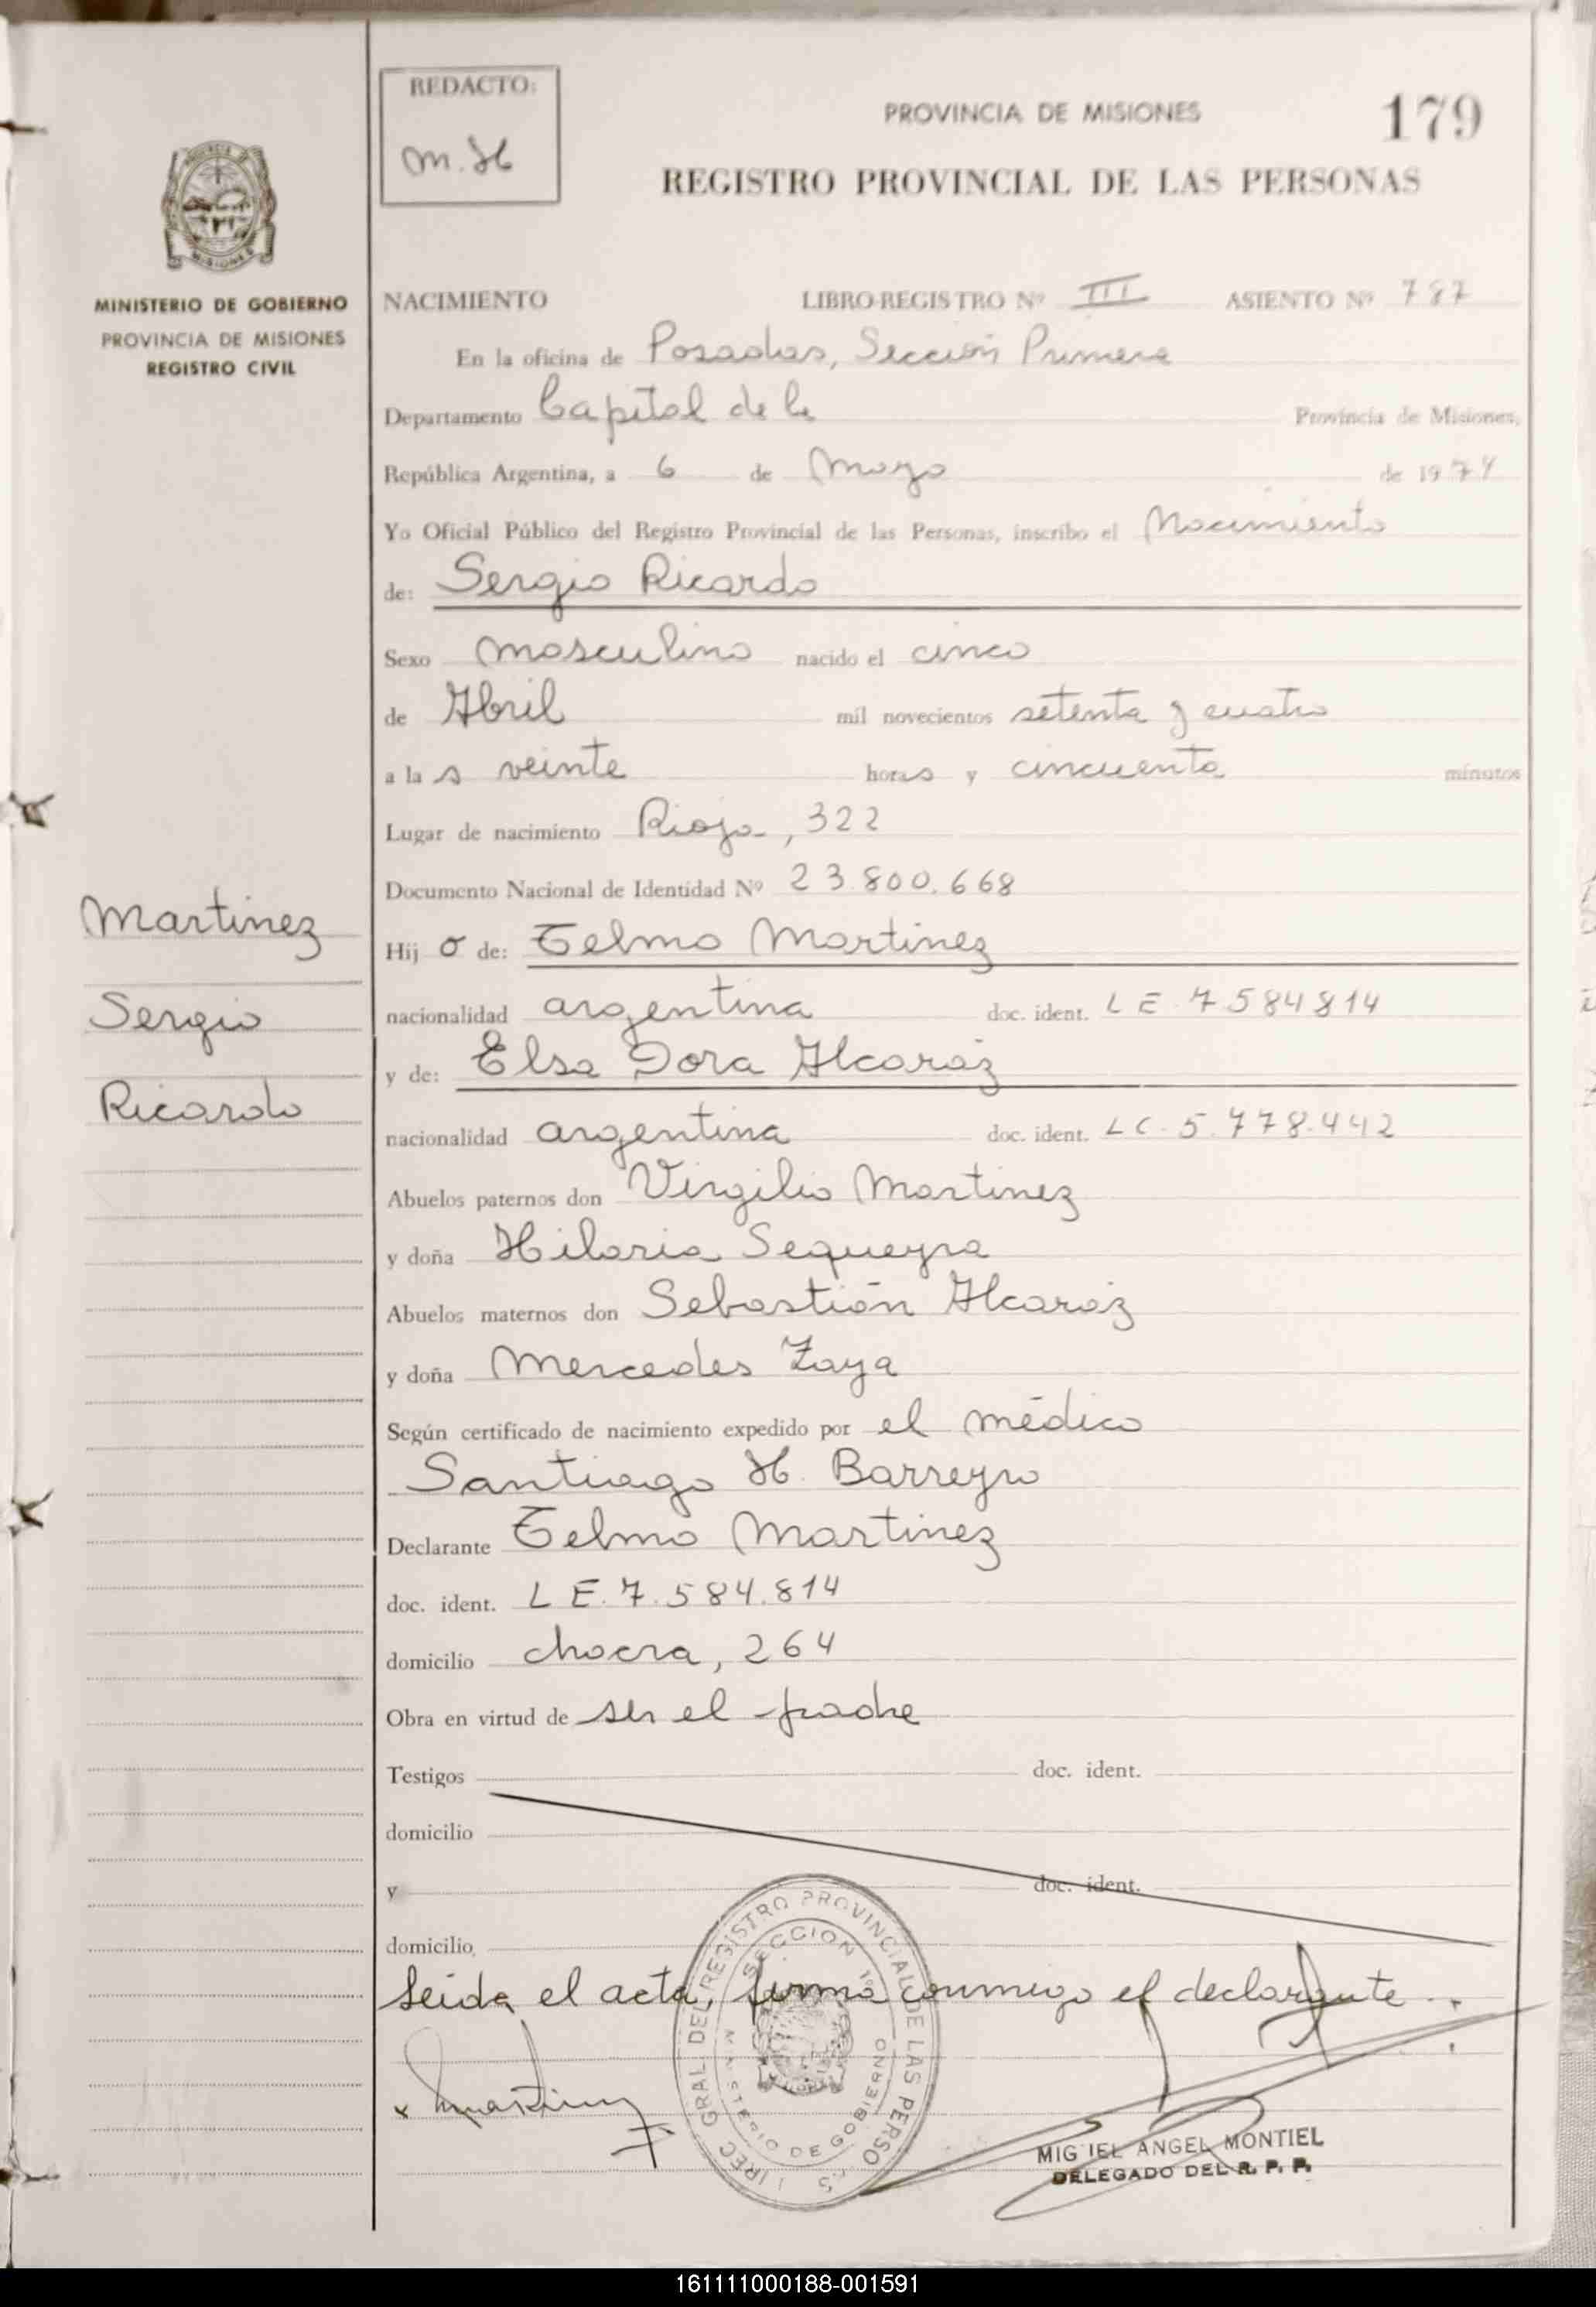 REDACTO:
M. H
PROVINCIA DE MISIONES
179
REGISTRO PROVINCIAL DE LAS PERSONAS
MINISTERIO DE GOBIERNO
PROVINCIA DE MISIONES
REGISTRO CIVIL
NACIMIENTO LIBRO-REGISTRO Nº III ASIENTO Nº 787
En la oficina de Posadas, Sección Primera
Departamento Capital de la Provincia de Misiones,
República Argentina, a 6 de Mayo de 1974
Yo Oficial Público del Registro Provincial de las Personas, inscribo el Nacimiento
de: Sergio Ricardo
Sexo masculino nacido el cinco
de Abril mil novecientos setenta y cuatro
a las veinte horas y cincuenta minutos
Lugar de nacimiento Rioja, 322
Documento Nacional de Identidad Nº 23.800.668
Hijo de: Telmo Martinez
nacionalidad argentina doc. ident. L E 7584814
y de: Elsa Dora Alcaráz
nacionalidad argentina doc. ident. L C. 5.778.442
Abuelos paternos don Virgilio Martinez
y doña Hilaria Sequeyra
Abuelos maternos don Sebastián Alcaráz
y doña Mercedes Zaya
Según certificado de nacimiento expedido por el médico
Santiago H. Barreyro
Declarante Telmo Martinez
doc. ident. L E. 7.584.814
domicilio chacra, 264
Obra en virtud de ser el padre
Testigos doc. ident.
domicilio
y doc. ident.
domicilio
Leida el acta, firma conmigo el declarante..
Martinez
Sergio
Ricardo
DIREC GRAL DEL REGISTRO PROVINCIAL DE LAS PERSONAS
SECCION 1º
MINISTERIO DE GOBIERNO
x Martinez
MIGUEL ANGEL MONTIEL
DELEGADO DEL R. P. P.
161111000188-001591